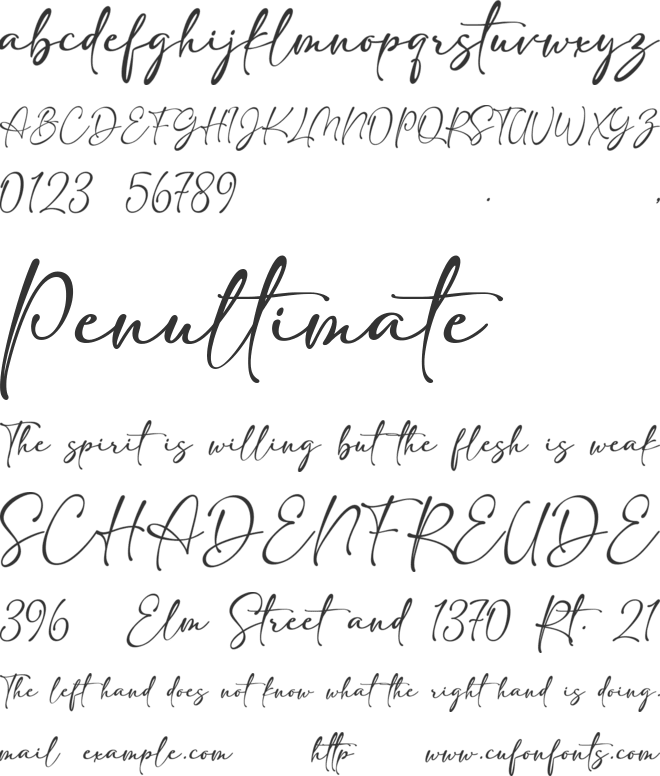 abcdefghijklmnopqrstuvwxyz
ABCDEFGHIJKLMNOPQRSTUVWXYZ
0123 56789 . ,
Penultimate
The spirit is willing but the flesh is weak
SCHADENFREUDE
396 Elm Street and 1370 Rt. 21
The left hand does not know what the right hand is doing.
mail example.com http www.cufonfonts.com